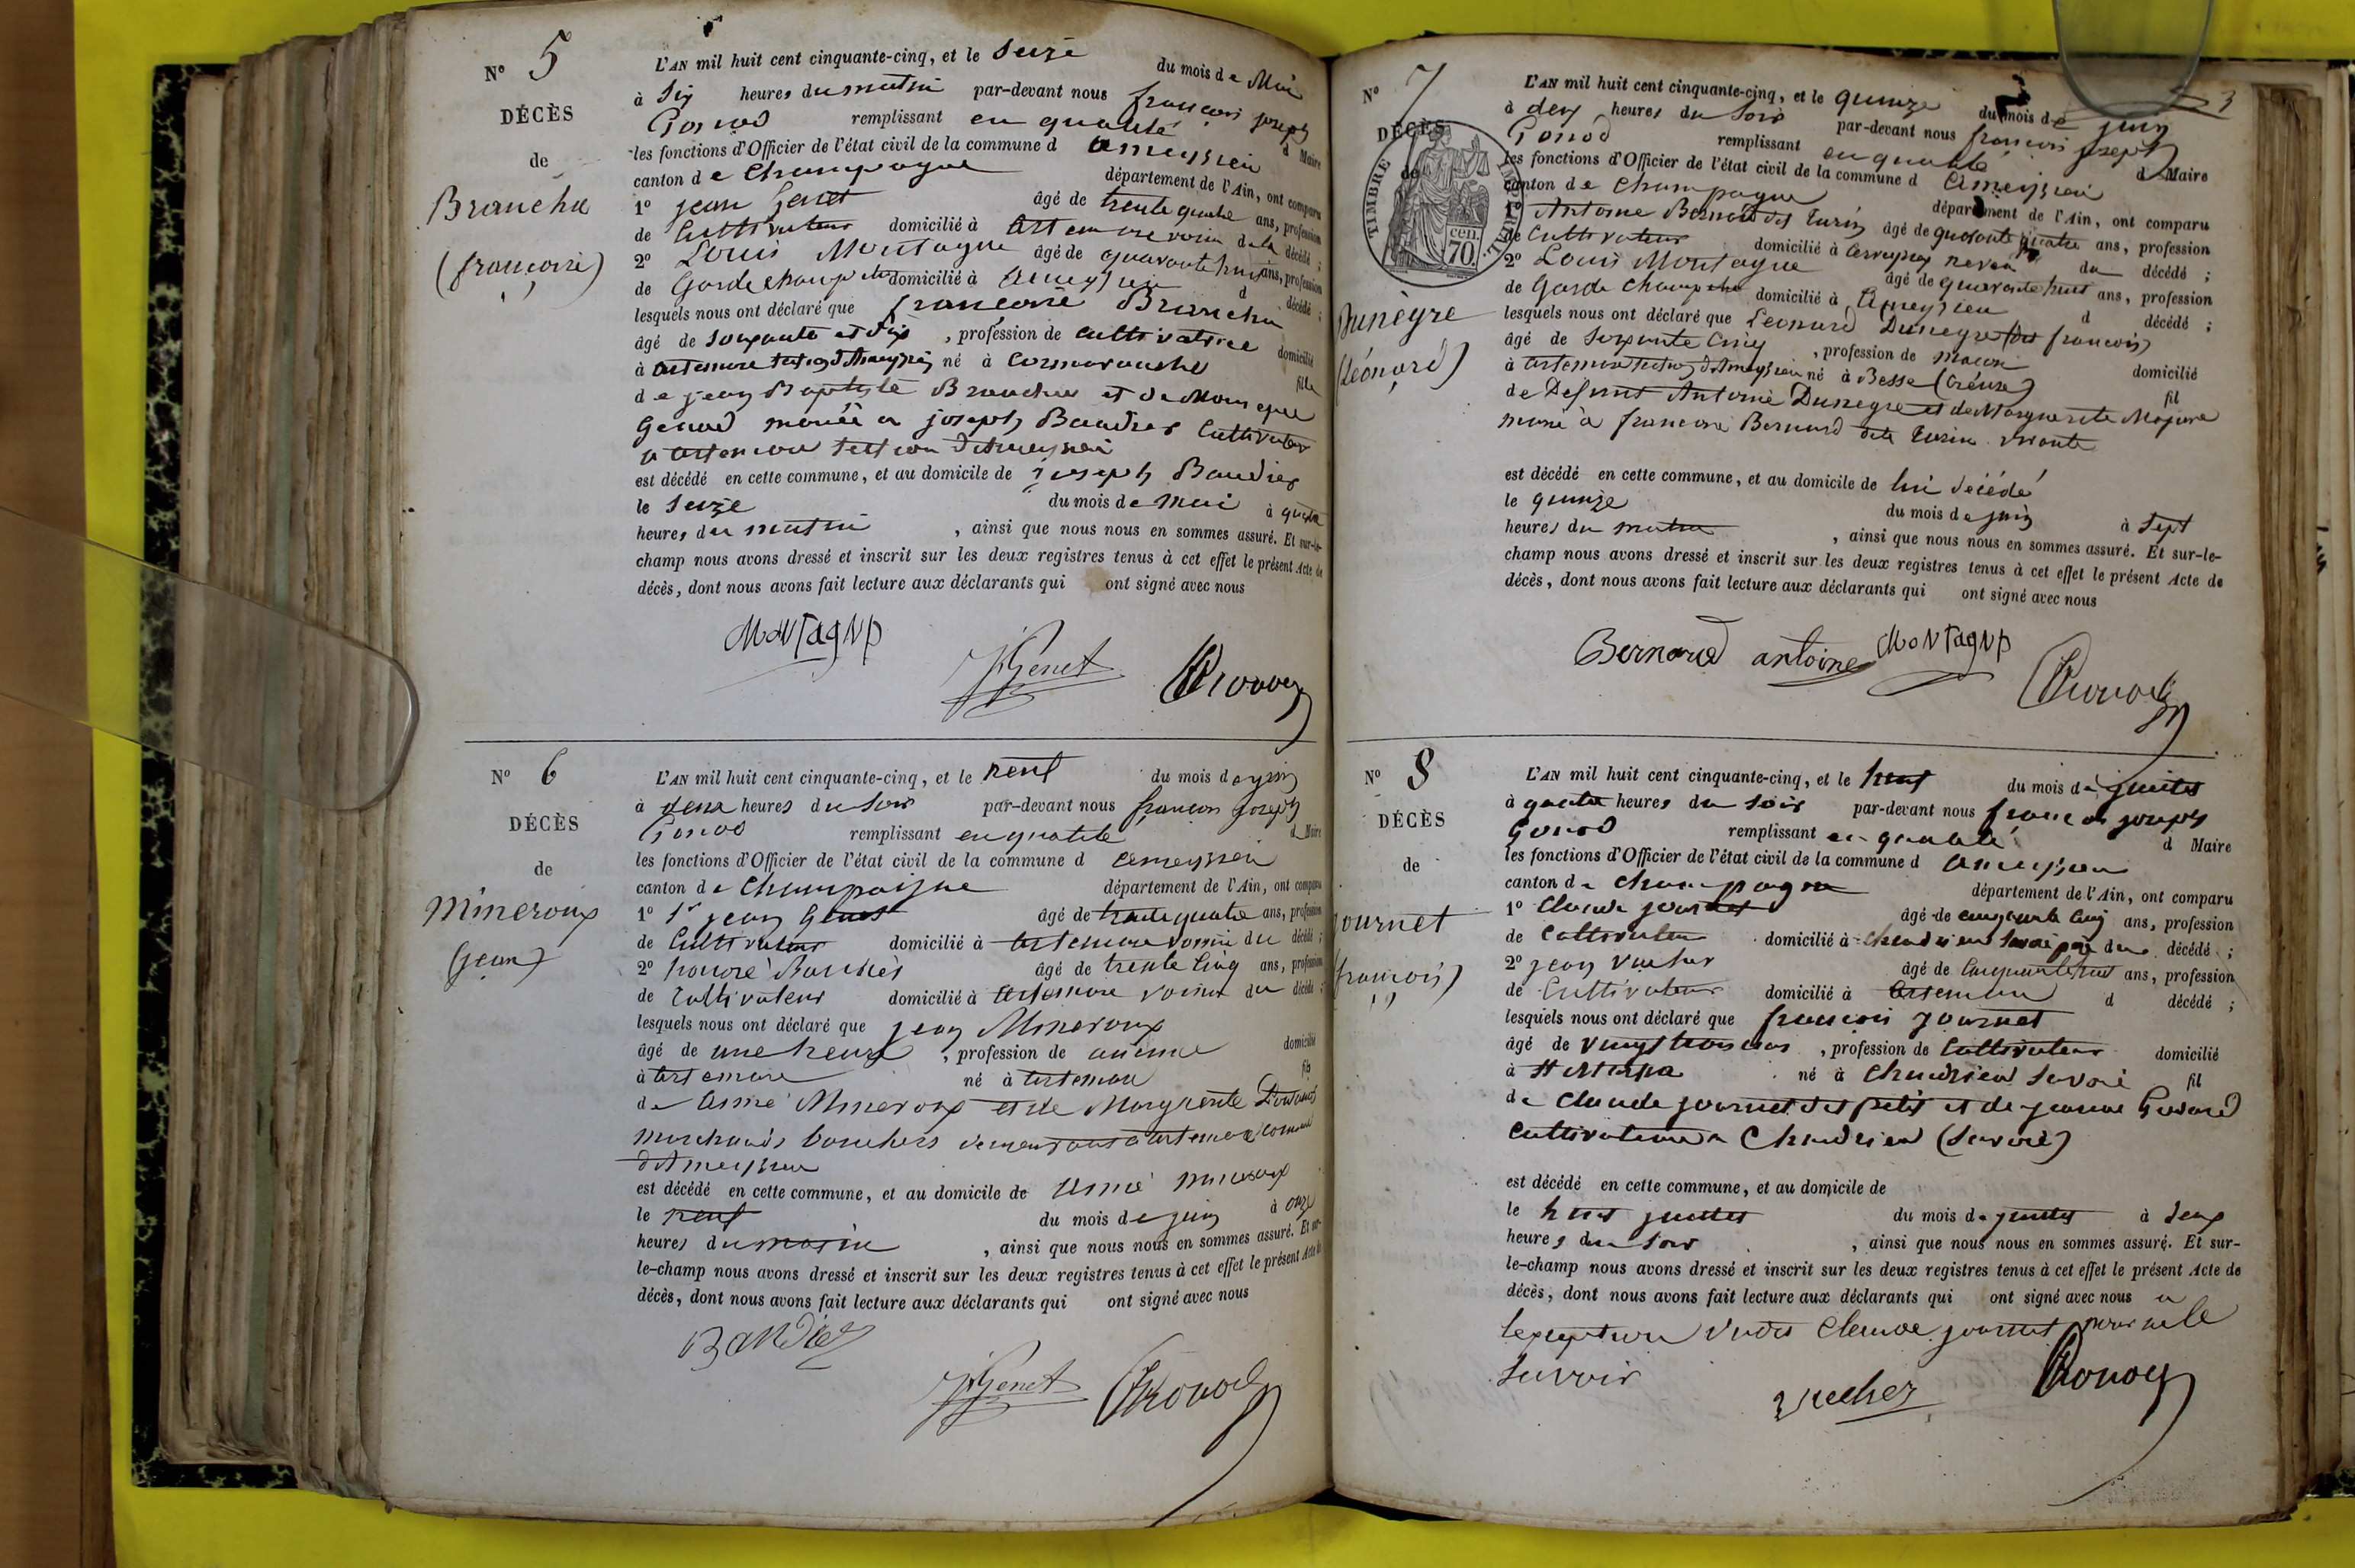 N° 5
DÉCÈS
de
Branche
(françoise)
L'AN mil huit cent cinquante-cinq, et le seize du mois de Mai
à six heures du matin par-devant nous françois joseph
Gonod remplissant en qualité d Maire
les fonctions d'Officier de l'état civil de la commune d ameyzieu
canton de Champagne département de l'Ain, ont comparu
1° jean Genet âgé de trente quatre ans, profession
de Cultivateur domicilié à artemare voisin de la décédé ;
2° Louis Montagne âgé de quarante huit ans, profession
de Garde champetre domicilié à ameyzieu d décédé ;
lesquels nous ont déclaré que françoise
âgé de soixante et dix , profession de cultivatrice domicilié
à artemare section d'Ameyzieu né à Cormaranche fille
de jean Baptiste et de
mariée a joseph Baudier Cultivateur
a artemare section d'Ameyzieu
est décédé en cette commune, et au domicile de joseph Baudier
le seize du mois de mai à quatre
heures du matin , ainsi que nous nous en sommes assuré. Et sur-le-
champ nous avons dressé et inscrit sur les deux registres tenus à cet effet le présent Acte de
décès, dont nous avons fait lecture aux déclarants qui ont signé avec nous
Montagne
JGenet
Gonod
N° 6
DÉCÈS
de
Mineroux
(jean)
L'AN mil huit cent cinquante-cinq, et le neuf du mois de juin
à deux heures du soir par-devant nous françois joseph
Gonod remplissant en qualité d Maire
les fonctions d'Officier de l'état civil de la commune d ameyzieu
canton de Champagne département de l'Ain, ont comparu
1° jean Genet âgé de trente quatre ans, profession
de Cultivateur domicilié à artemare voisin du décédé ;
2° honoré Baudier âgé de trente cinq ans, profession
de Cultivateur domicilié à artemare voisin du décédé ;
lesquels nous ont déclaré que jean Mineroux
âgé de une heure , profession de aucune domicilié
à artemare né à artemare fils
de aimé Mineroux et de Marguerite
marchands bouchers demeurant à artemare commune
d'Ameyzieu
est décédé en cette commune, et au domicile de aimé mineroux
le neuf du mois de juin à onze
heures du matin , ainsi que nous nous en sommes assuré. Et sur-
le-champ nous avons dressé et inscrit sur les deux registres tenus à cet effet le présent Acte de
décès, dont nous avons fait lecture aux déclarants qui ont signé avec nous
Baudier
JGenet
Gonod
3
N° 7
DÉCÈS
de
TIMBRE IMPÉRIAL
70 cen.
Dunègre
(Léonard)
L'AN mil huit cent cinquante-cinq, et le quinze du mois de juin
à dix heures du soir par-devant nous françois joseph
Gonod remplissant en qualité d Maire
les fonctions d'Officier de l'état civil de la commune d ameyzieu
canton de Champagne département de l'Ain, ont comparu
1° Antoine Bernard dit Turin âgé de quarante quatre ans, profession
de Cultivateur domicilié à neveu du décédé ;
2° Louis Montagne âgé de quarante huit ans, profession
de Garde champetre domicilié à ameyzieu d décédé ;
lesquels nous ont déclaré que Leonard Dunegre (dit françois)
âgé de soixante cinq , profession de macon domicilié
à artemare section d'Ameyzieu né à Besse (Creuse) fil
de Defunt Antoine Dunegre et de Marguerite Majure
marié à françoise Bernard dite Turin vivante
est décédé en cette commune, et au domicile de lui décédé
le quinze du mois de juin à sept
heures du matin , ainsi que nous nous en sommes assuré. Et sur-le-
champ nous avons dressé et inscrit sur les deux registres tenus à cet effet le présent Acte de
décès, dont nous avons fait lecture aux déclarants qui ont signé avec nous
Bernard antoine
Montagne
Gonod
N° 8
DÉCÈS
de
journet
(françois)
L'AN mil huit cent cinquante-cinq, et le huit du mois de juillet
à quatre heures du soir par-devant nous françois joseph
Gonod remplissant en qualité d Maire
les fonctions d'Officier de l'état civil de la commune d ameyzieu
canton de champagne département de l'Ain, ont comparu
1° Claude journet âgé de cinquante cinq ans, profession
de Cultivateur domicilié à Chindrieu Savoie père du décédé ;
2° jean Vucher âgé de cinquante huit ans, profession
de Cultivateur domicilié à artemare d décédé ;
lesquels nous ont déclaré que françois journet
âgé de vingt trois ans , profession de Cultivateur domicilié
à né à Chindrieu Savoie fil
de Claude journet dit petit et de jeanne
cultivateurs a Chindrieu (Savoie)
est décédé en cette commune, et au domicile de
le huit juillet du mois de juillet à deux
heures du soir , ainsi que nous nous en sommes assuré. Et sur-
le-champ nous avons dressé et inscrit sur les deux registres tenus à cet effet le présent Acte de
décès, dont nous avons fait lecture aux déclarants qui ont signé avec nous a
Claude journet pour ne le
savoir
Vucher
Gonod